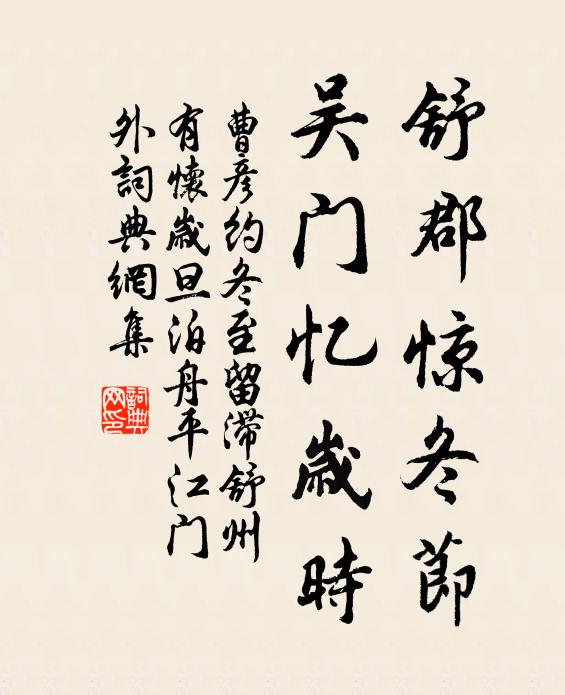 舒郡惊冬節
吴门忆歲時
曹彦约冬至留滞舒州
有懷歲旦泊舟平江门
外詞典網集
詞典
网印